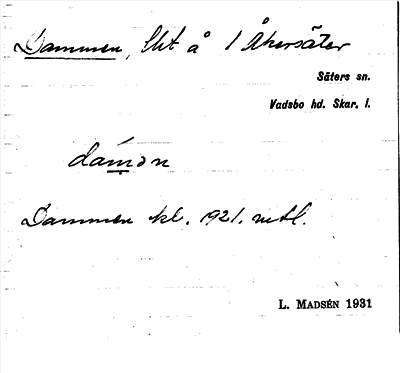 Dammen, lht å 1 Åkersäter
Säters sn.
Vadsbo hd. Skar. l.
dám̲ən
Dammen kl. 1921. mtl.
L. MADSÉN 1931